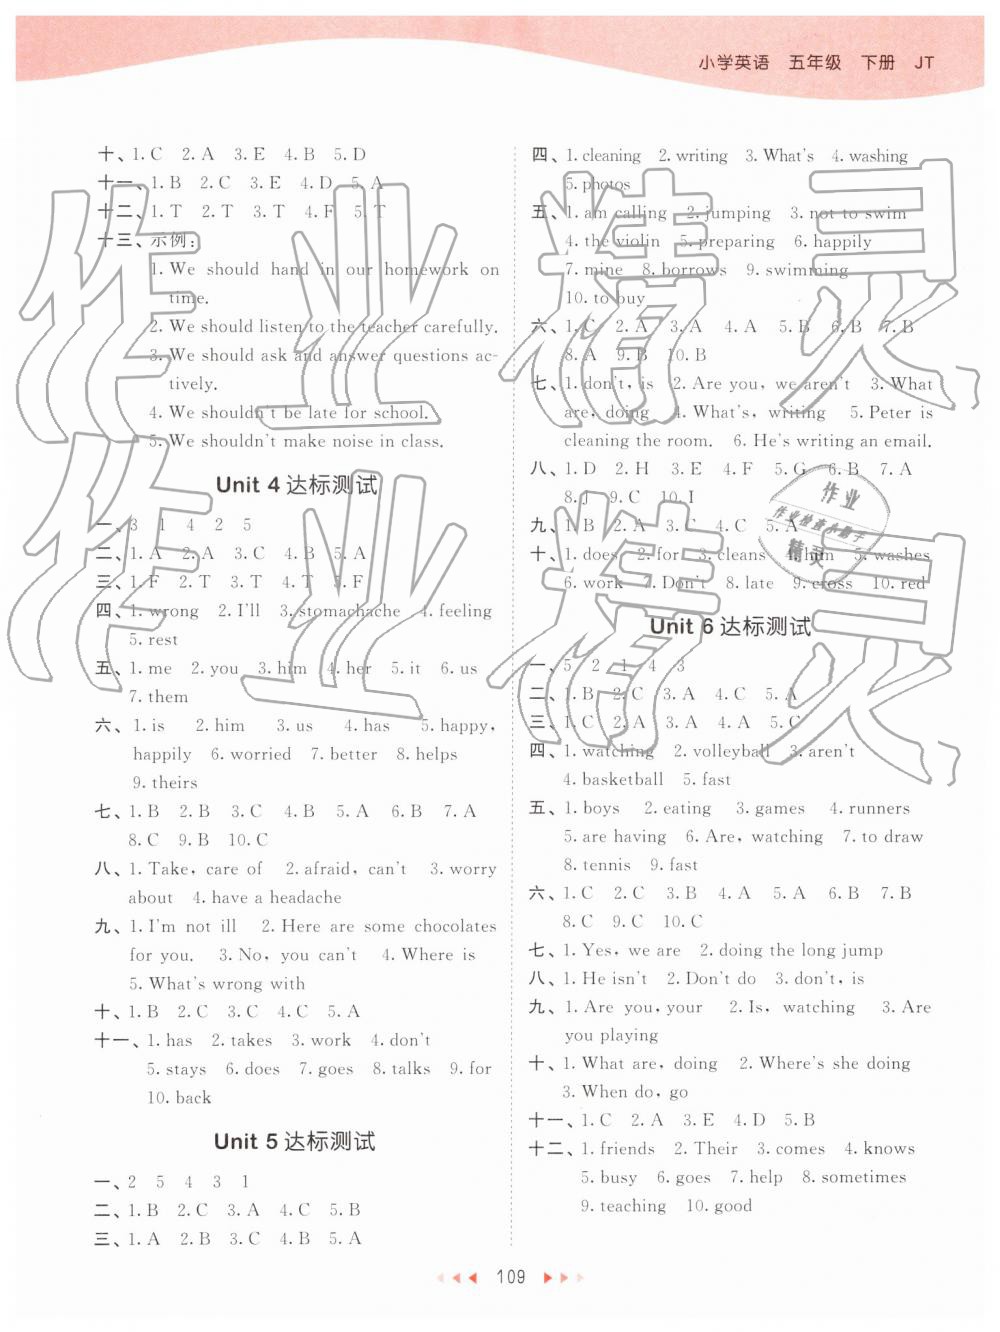 小学英语 五年级 下册 JT
十、1. C 2. A 3. E 4. B 5. D
十一、1. B 2. C 3. E 4. D 5. A
十二、1. T 2. T 3. T 4. F 5. T
十三、示例：
1. We should hand in our homework on
time.
2. We should listen to the teacher carefully.
3. We should ask and answer questions ac-
tively.
4. We shouldn't be late for school.
5. We shouldn't make noise in class.
Unit 4 达标测试
一、3 1 4 2 5
二、1. A 2. A 3. C 4. B 5. A
三、1. F 2. T 3. T 4. T 5. F
四、1. wrong 2. I'll 3. stomachache 4. feeling
5. rest
五、1. me 2. you 3. him 4. her 5. it 6. us
7. them
六、1. is 2. him 3. us 4. has 5. happy,
happily 6. worried 7. better 8. helps
9. theirs
七、1. B 2. B 3. C 4. B 5. A 6. B 7. A
8. C 9. B 10. C
八、1. Take, care of 2. afraid, can't 3. worry
about 4. have a headache
九、1. I'm not ill 2. Here are some chocolates
for you. 3. No, you can't 4. Where is
5. What's wrong with
十、1. B 2. C 3. C 4. C 5. A
十一、1. has 2. takes 3. work 4. don't
5. stays 6. does 7. goes 8. talks 9. for
10. back
Unit 5 达标测试
一、2 5 4 3 1
二、1. B 2. C 3. A 4. C 5. B
三、1. A 2. B 3. C 4. B 5. A
四、1. cleaning 2. writing 3. What's 4. washing
5. photos
五、1. am calling 2. jumping 3. not to swim
4. the violin 5. preparing 6. happily
7. mine 8. borrows 9. swimming
10. to buy
六、1. C 2. A 3. A 4. A 5. B 6. B 7. B
8. A 9. B 10. B
七、1. don't, is 2. Are you, we aren't 3. What
are, doing 4. What's, writing 5. Peter is
cleaning the room. 6. He's writing an email.
八、1. D 2. H 3. E 4. F 5. G 6. B 7. A
8. J 9. C 10. I
九、1. B 2. A 3. C 4. C 5. A
十、1. does 2. for 3. cleans 4. him 5. washes
6. work 7. Don't 8. late 9. cross 10. red
Unit 6 达标测试
一、5 2 1 4 3
二、1. B 2. C 3. A 4. C 5. A
三、1. C 2. A 3. A 4. A 5. C
四、1. watching 2. volleyball 3. aren't
4. basketball 5. fast
五、1. boys 2. eating 3. games 4. runners
5. are having 6. Are, watching 7. to draw
8. tennis 9. fast
六、1. C 2. C 3. B 4. A 5. A 6. B 7. B
8. C 9. C 10. C
七、1. Yes, we are 2. doing the long jump
八、1. He isn't 2. Don't do 3. don't, is
九、1. Are you, your 2. Is, watching 3. Are
you playing
十、1. What are, doing 2. Where's she doing
3. When do, go
十一、1. C 2. A 3. E 4. D 5. B
十二、1. friends 2. Their 3. comes 4. knows
5. busy 6. goes 7. help 8. sometimes
9. teaching 10. good
109
作业精灵
作业精灵
作业
作业检查小助手
精灵